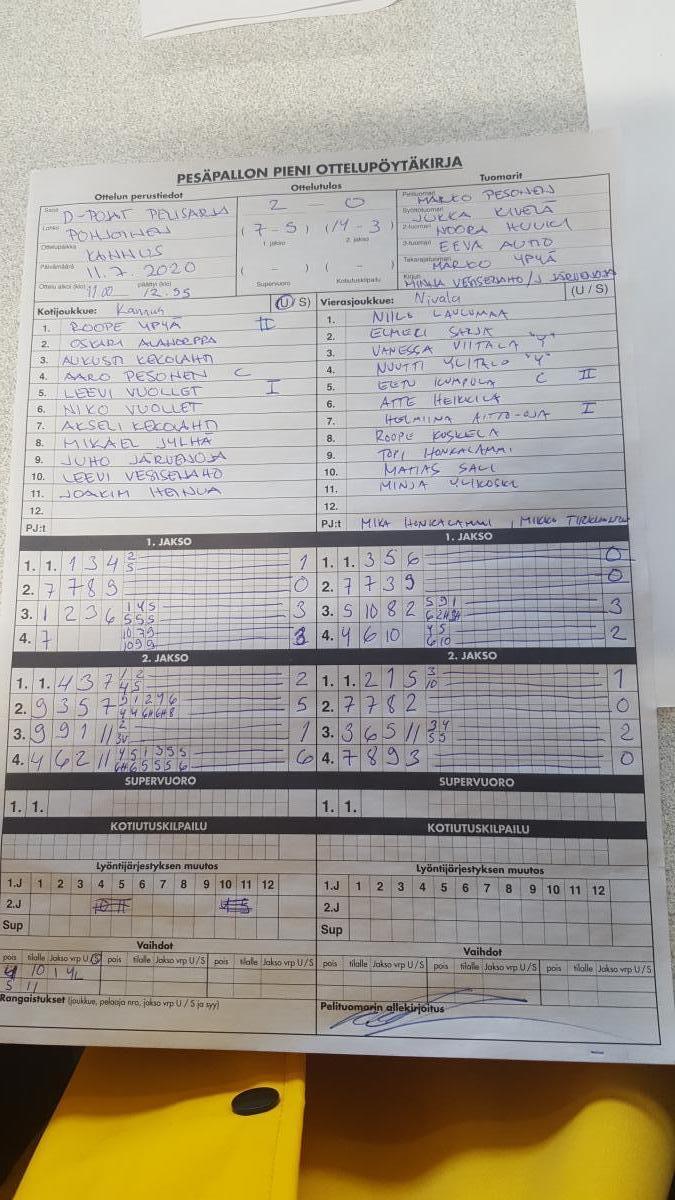 PESÄPALLON PIENI OTTELUPÖYTÄKIRJA
Ottelun perustiedot
Ottelutulos
Tuomarit
Sarja D-POJAT PELISARJA
Lohko POHJOINEN
Ottelupaikka KANNUS
Päivämäärä 11.7.2020
Ottelu alkoi (klo) 11.00 päättyi (klo) 12.55
2 - 0
(7-5) (14-3)
1. jakso 2. jakso
( - ) ( - )
Supervuoro Kotiutuskilpailu
Pelituomari MARKO PESONEN
Syöttötuomari JUKKA KIVELÄ
2-tuomari NOORA HUUKI
3-tuomari EEVA AUTIO
Takarajatuomari MARKO YPYÄ
Kirjuri MINNA VESISENAHO/J JÄRVENOJA
Kotijoukkue: Kannus (U/S)
1. ROOPE YPYÄ II
2. OSKARI ALANORPPA
3. AUKUSTI KEKOLAHTI
4. AARO PESONEN C
5. LEEVI VUOLLET I
6. NIKO VUOLLET
7. AKSELI KEKOLAHTI
8. MIKAEL JYLHÄ
9. JUHO JÄRVENOJA
10. LEEVI VESISENAHO
11. JOAKIM HEINUA
12.
PJ:t
Vierasjoukkue: Nivala (U/S)
1. NIILO LAULUMAA
2. ELMERI SARJA
3. VANESSA VIITALA "Y"
4. NUUTTI YLITALO "Y"
5. EETU KUMPULA C II
6. ATTE HEIKKILÄ
7. HELMIINA AITTO-OJA I
8. ROOPE KOSKELA
9. TOPI HONKALAMMI
10. MATIAS SALI
11. MINJA YLIKOSKI
12.
PJ:t MIKA HONKALAMMI, MIKKO
1. JAKSO
1. 1. 1 3 4 2 5 1
2. 7 7 8 9 0
3. 1 2 3 6 1 4 5 5 5 5 3
4. 7 10 7 9 10 9 9 3
1. JAKSO
1. 1. 3 5 6 0
2. 7 7 3 9 0
3. 5 10 8 2 5 9 1 3
4. 4 6 10 4 5 6 10 2
2. JAKSO
1. 1. 4 3 7 1 2 4 5 2
2. 9 3 5 7 5 1 2 4 6 5
3. 9 9 1 11 2 3V 1
4. 4 6 2 11 4 5 1 3 5 5 6
2. JAKSO
1. 1. 2 1 5 3 10 1
2. 7 7 8 2 0
3. 3 6 5 11 3 4 5 5 2
4. 7 8 9 3 0
SUPERVUORO
1. 1.
SUPERVUORO
1. 1.
KOTIUTUSKILPAILU
KOTIUTUSKILPAILU
Lyöntijärjestyksen muutos
1.J 1 2 3 4 5 6 7 8 9 10 11 12
2.J
Sup
Lyöntijärjestyksen muutos
1.J 1 2 3 4 5 6 7 8 9 10 11 12
2.J
Sup
Vaihdot
pois tilalle Jakso vrp U/S pois tilalle Jakso vrp U/S pois tilalle Jakso vrp U/S
4 10 1 4L
5 11
Vaihdot
pois tilalle Jakso vrp U/S pois tilalle Jakso vrp U/S pois tilalle Jakso vrp U/S
Rangaistukset (joukkue, pelaaja nro, jakso vrp U/S ja syy)
Pelituomarin allekirjoitus